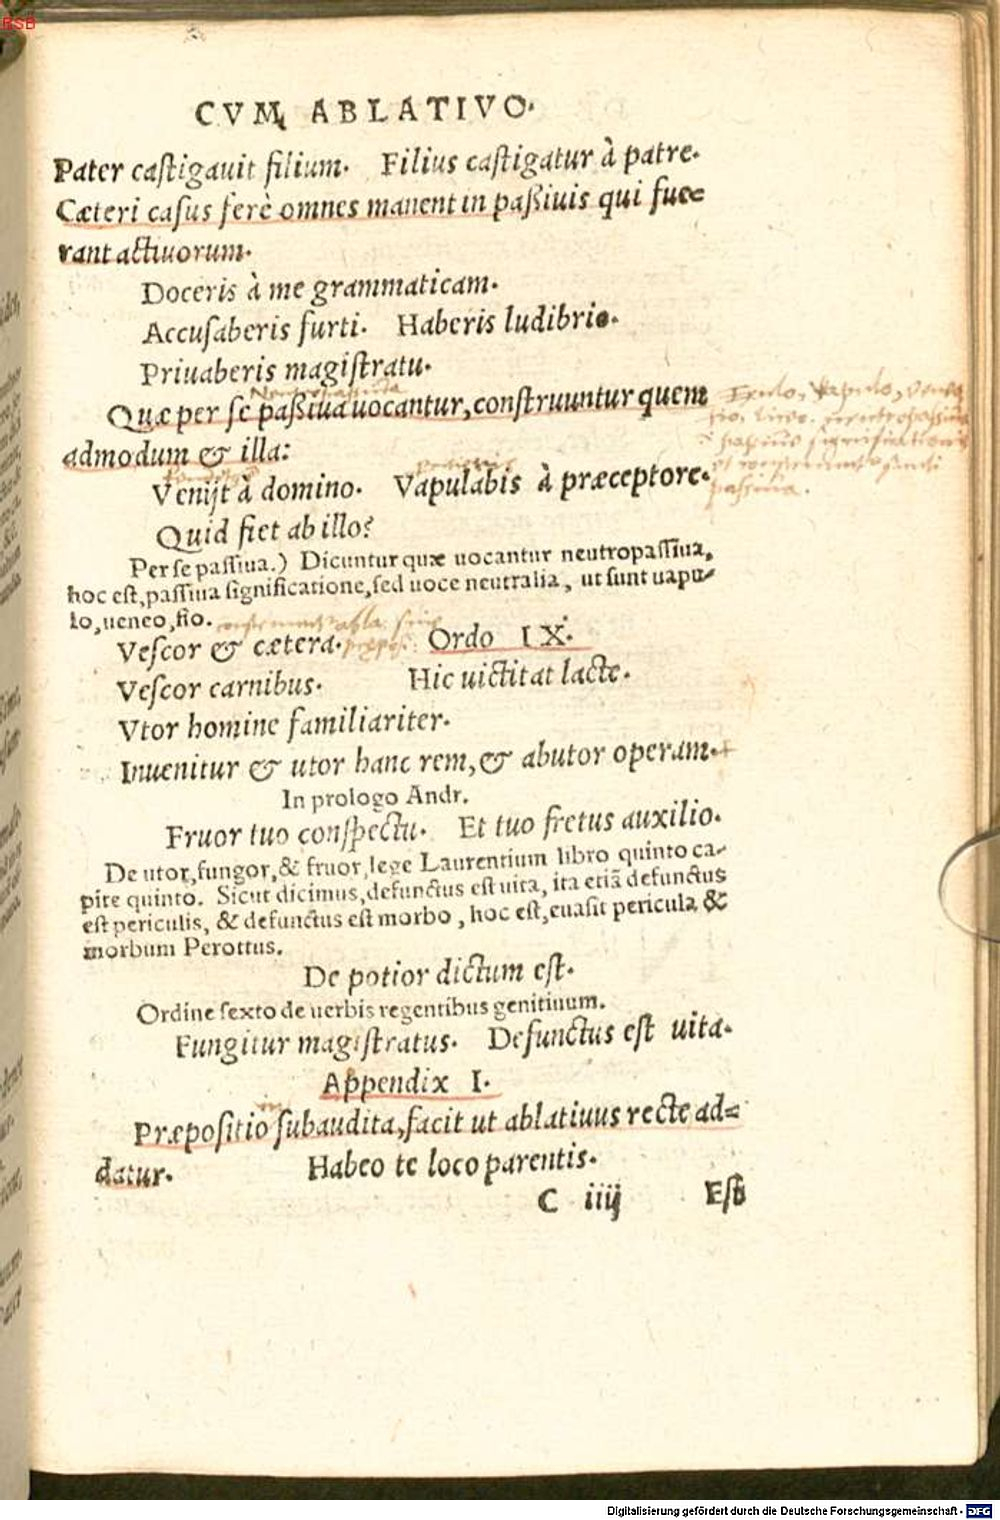 CVM ABLATIVO.
Pater castigauit filium. Filius castigatur à patre.
Cæteri casus ferè omnes manent in paßiuis qui fue=
rant actiuorum.
Doceris à me grammaticam.
Accusaberis furti. Haberis ludibrio.
Priuaberis magistratu.
Neutropassiua
Quæ per se paßiua uocantur, construuntur quem
admodum & illa:
Venijt à domino. Vapulabis à præceptore.
Quid fiet ab illo?
Per se passiua.) Dicuntur quæ uocantur neutropassiua,
hoc est, passiua significatione, sed uoce neutralia, ut sunt uapu-
lo, ueneo, fio.
Vescor & cætera. Ordo IX.
Vescor carnibus. Hic uictitat lacte.
Vtor homine familiariter.
Inuenitur & utor hanc rem, & abutor operam.
In prologo Andr.
Fruor tuo conspectu. Et tuo fretus auxilio.
De utor, fungor, & fruor, lege Laurentium libro quinto ca-
pite quinto. Sicut dicimus, defunctus est uita, ita etiã defunctus
est periculis, & defunctus est morbo, hoc est, euasit pericula &
morbum Perottus.
De potior dictum est.
Ordine sexto de uerbis regentibus genitiuum.
Fungitur magistratus. Defunctus est uita.
Appendix I.
Præpositio subaudita, facit ut ablatiuus recte ad=
datur. Habeo te loco parentis.
C iiij Est
Digitalisierung gefördert durch die Deutsche Forschungsgemeinschaft - DFG